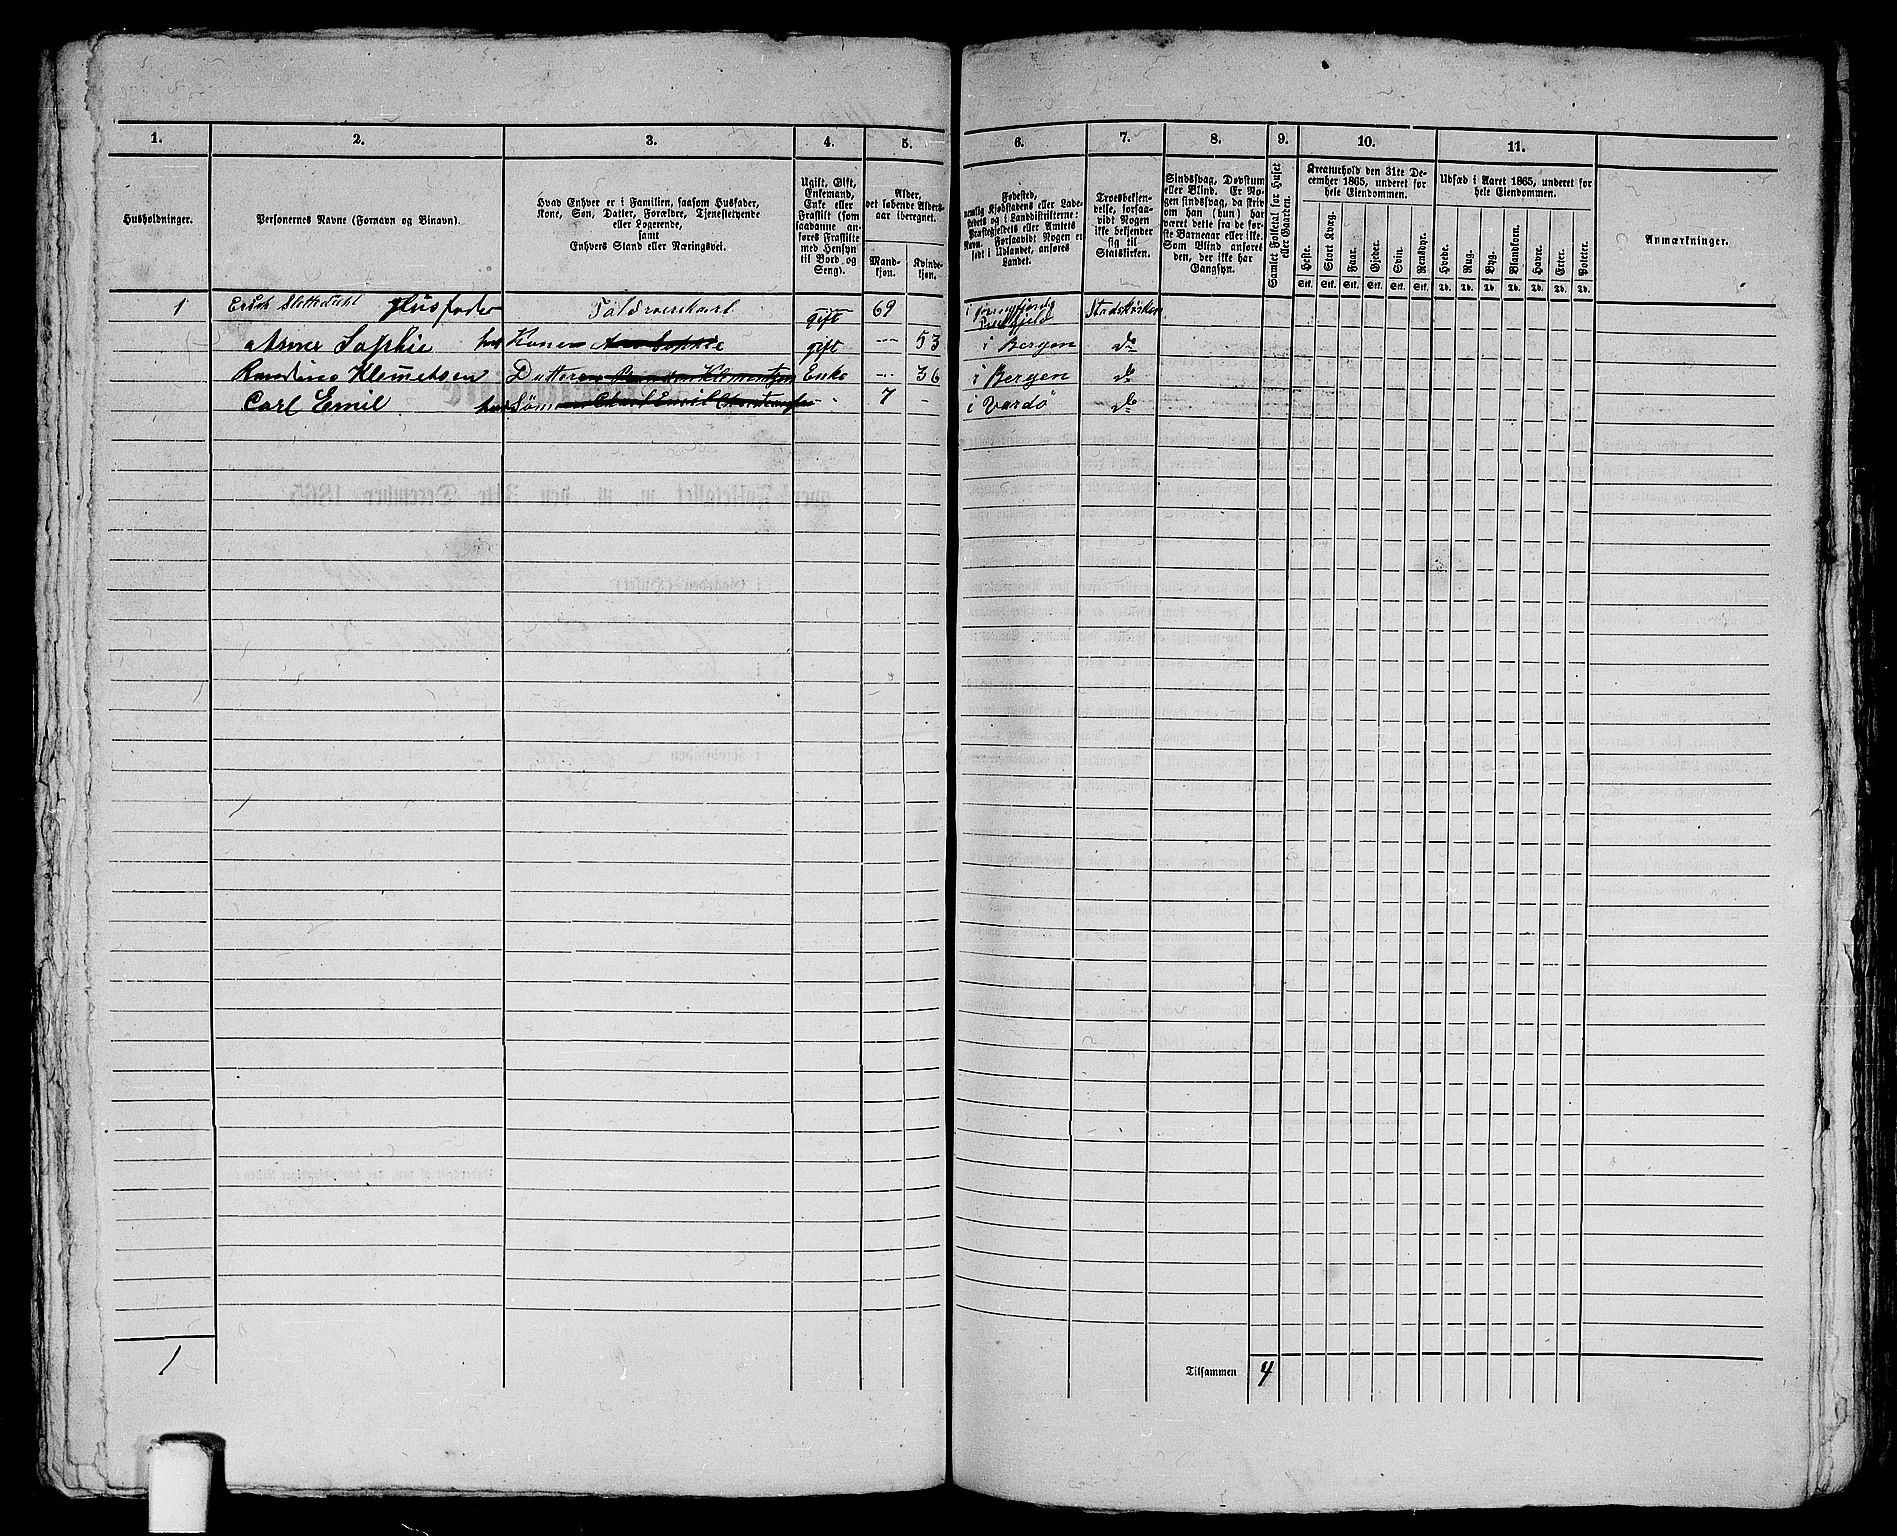 1. 2. 3. 4. 5. 6. 7. 8. 9. 10. 11.
Husholdninger.
Personernes Navne (Fornavn og Binavn).
Hvad Enhver er i Familien, saasom Husfader,
Kone, Søn, Datter, Forældre, Tjenestetyende
eller Logerende,
samt
Enhvers Stand eller Næringsvei.
Ugift, Gift,
Enkemand,
Enke eller
Fraskilt (som
saadanne an-
føres Fraskilte
med Hensyn
til Bord og
Seng).
Alder,
det løbende Alders-
aar iberegnet.
Mand-
kjøn.
Kvinde-
kjøn.
Fødested,
nemlig Kjøbstadens eller Lade-
stedets og i Landdistrikterne:
Præstegjeldets eller Amtets
Navn. Forsaavidt Nogen er
født i Udlandet, anføres
Landet.
Troesbekjen-
delse, forsaa-
vidt Nogen
ikke bekjender
sig til
Statskirken.
Sindssvag, Døvstum
eller Blind. Er No-
gen sindssvag, da skriv
om han (hun) har
været dette fra de før-
ste Barneaar eller ikke.
Som Blind anføres
den, der ikke har
Gangsyn.
Samlet Folketal for Huset
eller Gaarden.
Kreaturhold den 31te De-
cember 1865, underet for
hele Eiendommen.
Heste. Stort Kvæg. Faar. Gjeder. Svin. Rensdyr.
Stk. Stk. Stk. Stk. Stk. Stk.
Udsæd i Aaret 1865, underet for
hele Eiendommen.
Hvede. Rug. Byg. Blandkorn. Havre. Erter. Poteter.
Td. Td. Td. Td. Td. Td. Td.
Anmærkninger.
1 Erick Slettedahl Husfader Toldroerskarl gift 69 i Stadskirken
Anne Sophie Kone gift 53 i Bergen do
Klemetsen Datter Enke 36 i Bergen do
Carl Emil Søn 7 i Vardö do
1
Tilsammen 4